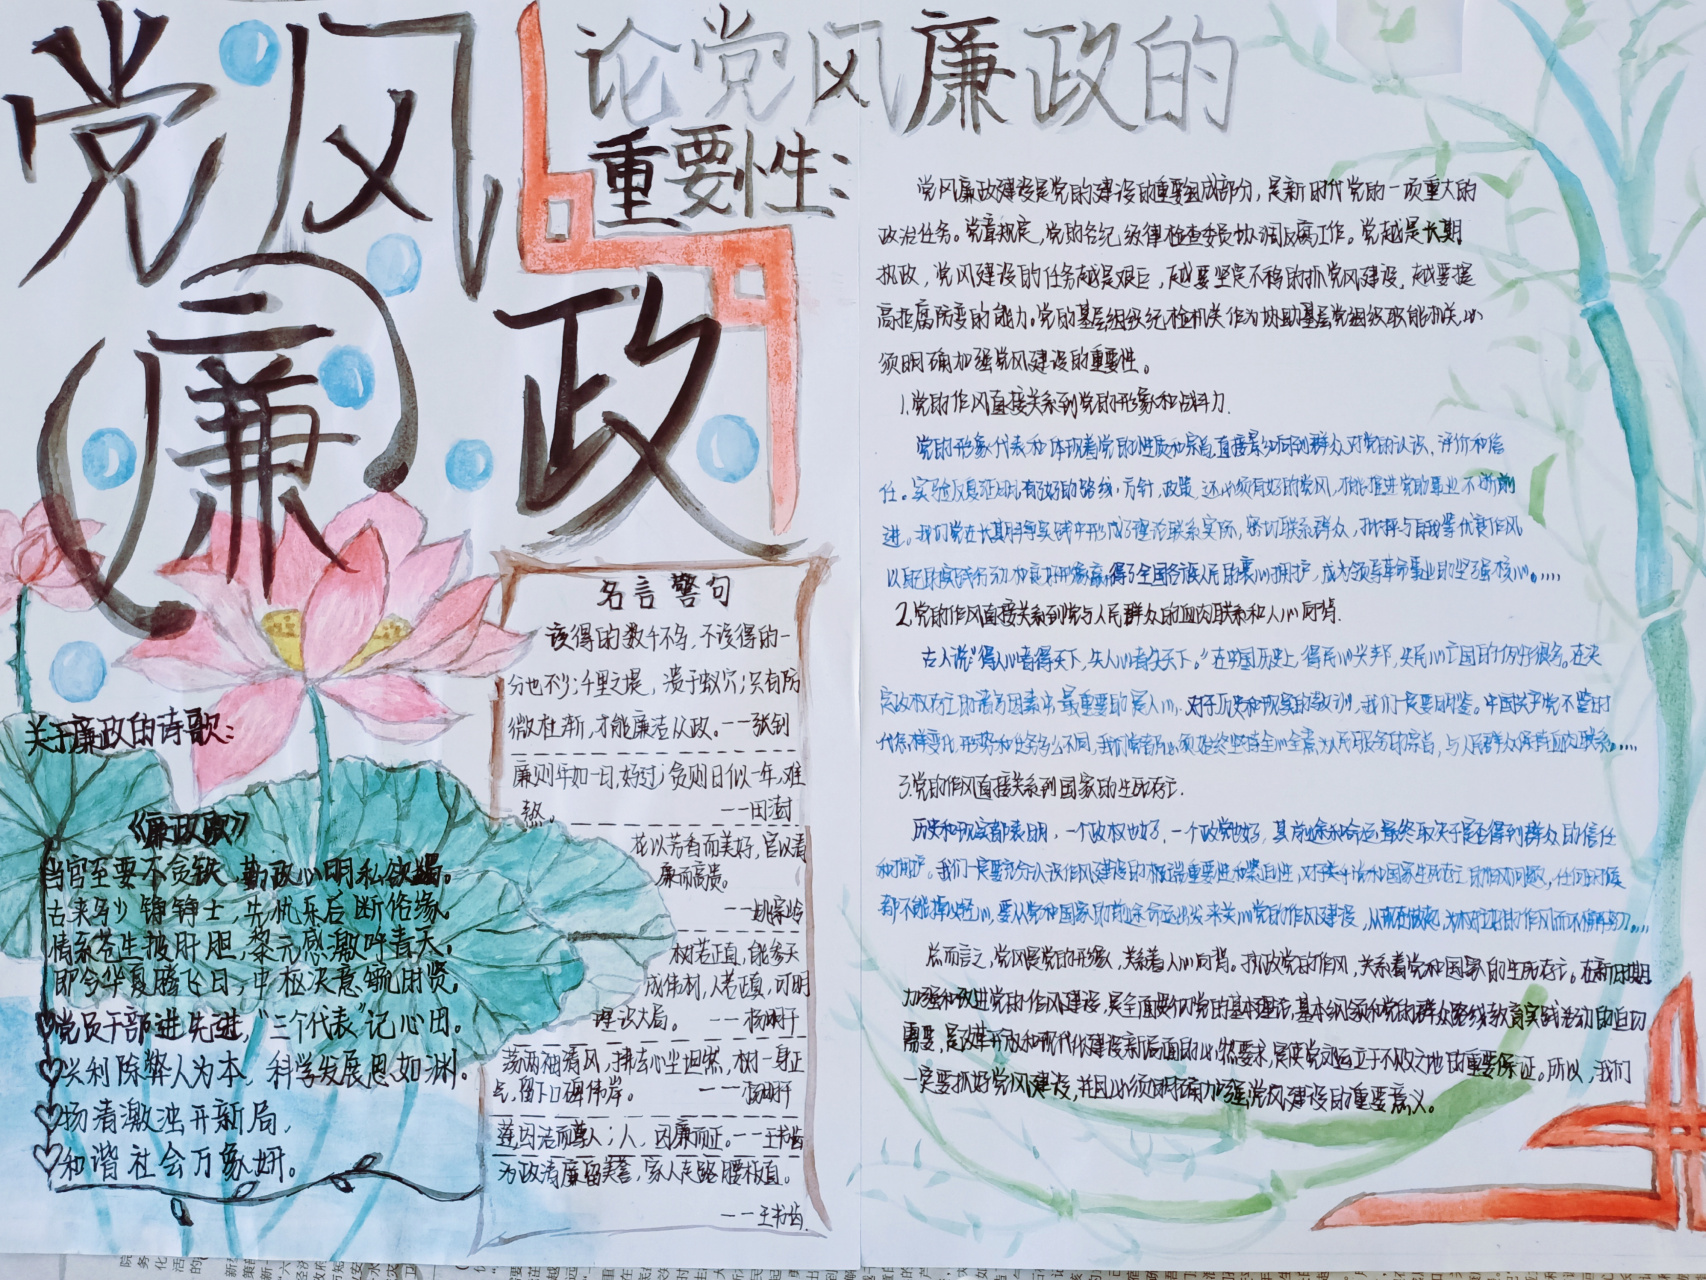 党风
廉政
关于廉政的诗歌:
《廉政歌》
当官至要不贪钱,勤政心明私欲蠲。
古来多少铮铮士,先忧乐后断俗缘。
情系苍生披肝胆,黎元感激呼青天。
即今华夏腾飞日,中枢决意毓时贤。
党员干部进先进,“三个代表”记心田。
兴利除弊人为本,科学发展思如渊。
扬清激浊开新局,
和谐社会万象妍。
名言警句
该得的数千不多,不该得的一
分也不少;千里之堤,溃于蚁穴;只有防
微杜渐,才能廉洁从政。——张钊
廉则年如一日,好过;贪则日似一年,难
熬。 ——田澍
花以芳香而美好,官以清
廉而高贵。
树若正直,能参天
成伟材,人若正直,可明
理识大局。 ——杨刚干
荡两袖清风,拂去心尘坦然,树一身正
气,留下口碑伟岸。 ——杨刚干
莲因洁而尊人;人,因廉而正。——王书尚
为政清廉留美誉,家人走路腰板直。
——王书尚
论党风廉政的
重要性:
党风廉政建设是党的建设的重要组成部分,是新时代党的一项重大的
政治任务。党章规定,党的各纪级律检查委员协调反腐工作。党越是长期
执政,党风建设的任务越是艰巨,越要坚定不移的抓党风建设,越要提
高拒腐防变的能力。党的基层组织纪检机关作为协助基层党组级职能机关,必
须明确加强党风建设的重要性。
1.党的作风直接关系到党的形象和战斗力.
党的形象代表和体现着党的性质和宗旨,直接影响到群众对党的认识、评价和信
任。实验反复证明,有了好的路线,方针,政策,还必须有好的党风,才能推进党的事业不断前
进。我们党在长期斗争实践中形成了理论联系实际,密切联系群众,批评与自我等优良作风
以及的实践行动和良好形象赢得了全国各族人民的衷心拥护,成为领导革命事业的坚强核心。....
2.党的作风直接关系到党与人民群众的血肉联系和人心向背.
古人说:“得人心者得天下,失人心者失天下。”在中国历史上,得民心兴邦,失民心亡国的例子很多。在决
定政权存亡的诸方因素中最重要的是人心。对于历史和现实的教训,我们一定要明鉴。中国共产党不管时
代怎样变化,形势和任务多么不同,我们党都必须始终坚持全心全意为人民服务的宗旨,与人民群众保持血肉联系。....
3.党的作风直接关系到国家的生死存亡.
历史和现实都表明,一个政权也好,一个政党也好,其前途和命运最终取决于是否得到群众的信任
和拥护。我们一定要充分认识作风建设的极端重要性和紧迫性,对关乎党和国家生死存亡的作风问题,任何时候
都不能掉以轻心,要从党和国家的前途命运出发来关心党的作风建设,
总而言之,党风是党的形象,关系着人心向背。执政党的作风,关系着党和国家的生死存亡。在新时期
加强和改进党的作风建设,是全面贯彻党的基本理论,基本纲领和党的群众路线教育实践活动的迫切
需要,是改革开放和现代化建设新局面的必然要求,是使党永远立于不败之地的重要保证。所以,我们
一定要抓好党风建设,并且必须明确加强党风建设的重要意义。